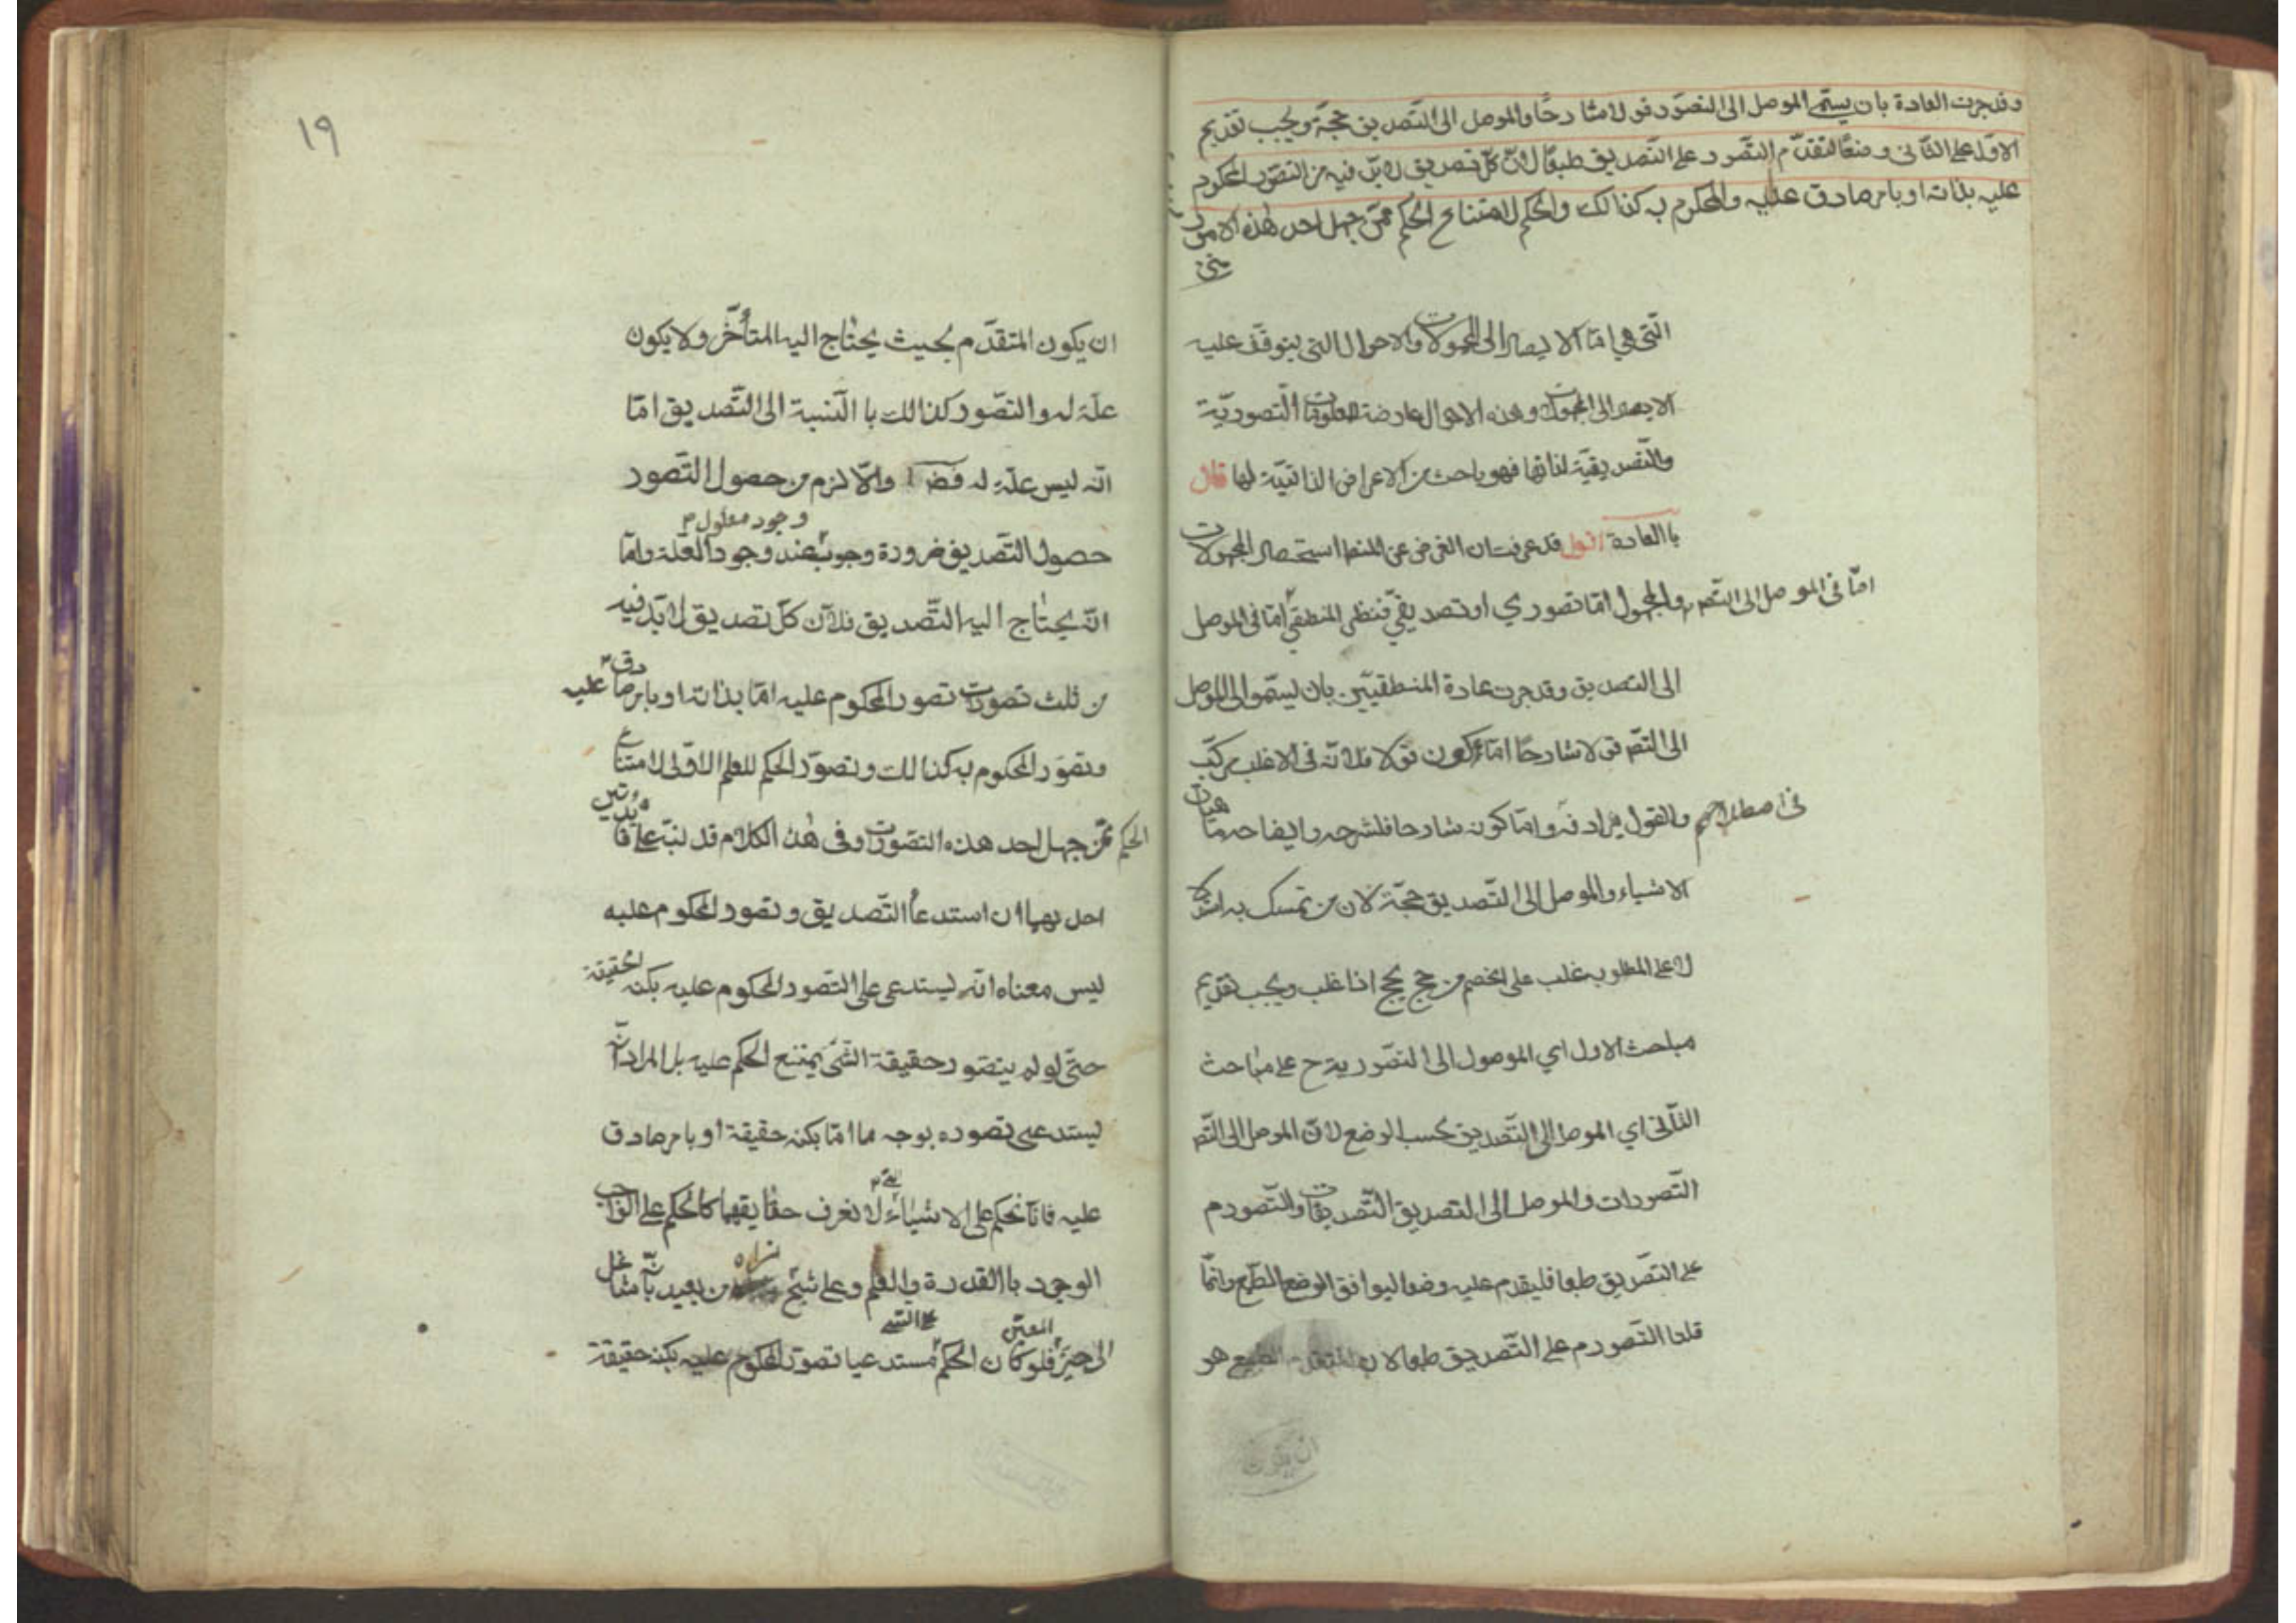 وقد جرت العادة بان يسمّى الموصل الى التصوّر قولا شارحًا والموصل الى التصديق حجّة ويجب تقديم
الاوّل على الثّانى وضعًا لتقدّم التصّور على التّصديق طبعًا لانّ كلّ تصديق لا بدّ فيه من التصوّر المحكوم
عليه بذاته او بامر صادق عليه والمحكوم به كذالك والحكم لامتناع الحكم ممّن جهل احد هٰذه الامور
التّى هي امّا الايصال الى المجهولات والاحوال التى يتوقّف عليه
الايصال الى المجهولات وهذه الاحوال عارضة للمعلومات التّصوريّة
والتّصديقيّة لذاتها فهو باحث من الاعراض الذاتيّة لها قال
باالعادة اقول قد عرفت ان الغرض عن المنطق استحصال المجهولات
والمجهول امّا تصوري او تصديقيّ فنظر المنطقيّ امّا فى الموصل امّا فى الموصل الى التّصور
الى التصديق وقد جرت عادة المنطقيّين بان يسمّوا الموصل
الى التّصور قولا شارحًا امّا كون قولا فلانّه فى الاغلب مركّب
والقول مرادفه وامّا كونه شارحا فلشرحه وايضاحه ماهيات فى اصطلاحهم
الاشياء والموصل الى التّصديق حجّة لان من تمسك به استدلالا
على المطلوب غلب على الخصم من حج يحج اذا غلب ويجب تقديم
مباحث الاول اي الموصول الى التصّور ية ح على مباحث
الثّانى اي الموصل الى التّصديق بحسب الوضع لانّ الموصل الى التّصور
التّصورات والموصل الى التصديق التّصديقات والتّصور م
على التصّديق طبعا فليقدم عليه وضعا ليوافق الوضع الطّبع وانمّا
قلنا التّصور م على التّصديق طبعا لان المتقدم الطبع هو
ان يكون
١٩
ان يكون المتقدّم بحيث يحتاج اليه المتأخّر ولا يكون
علّة له والتصّور كذالك باالنّسبة الى التّصديق امّا
انّه ليس علّة له والّا لزم من حصول التّصور
حصول التّصديق ضرورة وجوب وجود معلول عند وجود العلّة وامّا
انّه يحتاج اليه التّصديق فلانّ كلّ تصديق لا بّد فيه
من ثلث تصورات تصور المحكوم عليه امّا بذاته او بامر صادق عليه
وتصوّر المحكوم به كذالك وتصوّر الحكم للعلم الاوّلى لامتناع
الحكم ممّن جهل احد هذه التصوّرات وفى هٰذ الكلام قد نبّه على فائدتين
احدىهما ان استدعاء التّصديق وتصور المحكوم عليه
ليس معناه انّه يستدعى على التّصور المحكوم عليه بكنه الحقيقة
حتّى لو لم يتصّور حقيقة الشّئ يمتنع الحكم عليه بل المراد انّه
يستدعى تصوره بوجه ما امّا بكنه حقيقة او بامر صادق
عليه فانّا نحكم على الاشياء لا نعرف حقايقها كما نحكم على الواجب
الوجود باالقدرة والعلم وعلى شبح نراه من بعيد بانّه شاغل
الى حيّز فلو كان الحكم مستدعيا تصوّر المحكوم عليه بكنه حقيقة